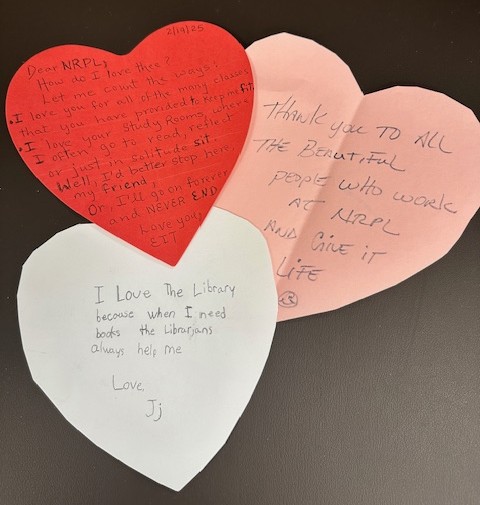 2/14/25
Dear NRPL,
How do I love thee?
Let me count the ways!
• I love you for all of the many classes
that you have provided to keep me fit.
• I love your Study Rooms where
I often go to read, reflect
or just in solitude sit.
Well, I'd better stop here
my friend,
Or, I'll go on forever
and NEVER END.
Love you,
EIT
THANK YOU TO ALL
THE BEAUTIFUL
PEOPLE WHO WORK
AT NRPL
AND GIVE IT
LIFE
I Love The Library
because when I need
books the Librarians
always help me
Love,
Jj